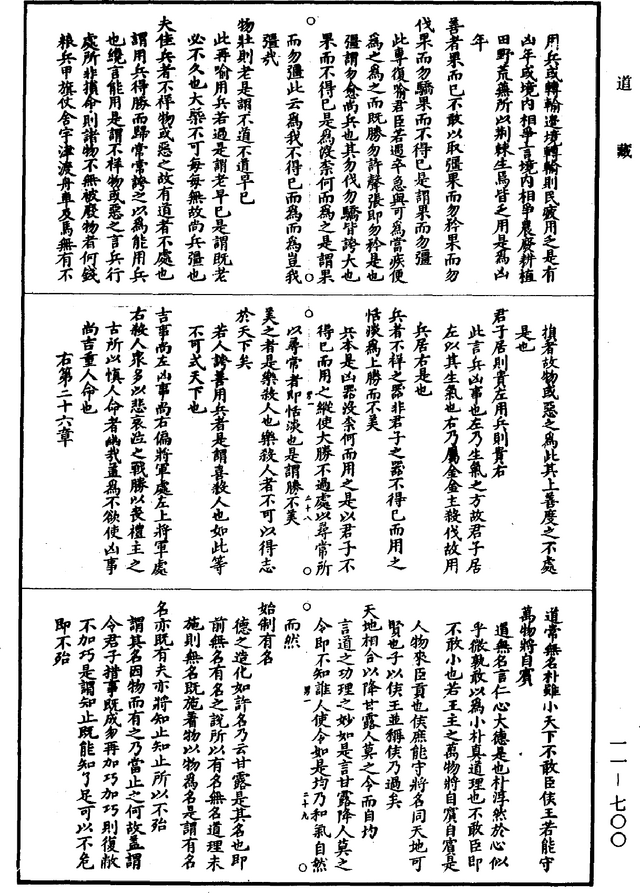 道藏
用兵或轉輸邊境轉輸則民疲用之是有
凶年或境内相爭言境内相爭農廢耕植
田野荒蕪所以荆棘生焉皆乏用是爲凶
年
善者果而已不敢以取彊果而勿矜果而勿
伐果而勿驕果而不得已是謂果而勿彊
此專復喻君臣若遇卒急與可爲當疾便
爲之爲之而既勝勿許聲張即勿矜是也
彊謂勿愈尚兵也其勿伐勿驕皆誇大也
果而不得已是爲没柰何而爲之是謂果
而勿彊此云爲我不得已而爲而爲豈我
彊哉
物壯則老是謂不道不道早已
此再喻用兵若過是謂老早已是謂既老
必不久也大槩不可每每無故尚兵彊也
夫佳兵者不祥物或惡之故有道者不處也
謂用兵得勝而歸常常誇之以爲能用兵
也纔言能用是謂不祥物或惡之言兵行
處所非損命則諸物不無被廢物者何錢
粮兵甲旗仗舍宇津渡舟車及馬無有不
損者故物或惡之爲此其上善度之不處
是也
君子居則貴左用兵則貴右
此言兵凶事也左乃生氣之方故君子居
左以其生氣也右乃屬金金主殺伐故用
兵居右是也
兵者不祥之器非君子之器不得已而用之
恬淡爲上勝而不美
兵本是凶器没柰何而用之是以君子不
得已而用之縱使大勝不過處以尋常所
以尋常者即恬淡也是謂勝不美
美之者是樂殺人也樂殺人者不可以得志
於天下矣
若人誇善用兵者是謂喜殺人也如此等
不可式天下也
吉事尚左凶事尚右偏將軍處左上將軍處
右殺人衆多以悲哀泣之戰勝以喪禮主之
古所以慎人命者幽我蓋爲不欲使凶事
尚吉重人命也
右第二十六章
道常無名朴雖小天下不敢臣侯王若能守
萬物將自賓
道無名言仁心大德是也朴淳然於心似
乎微孰敢以爲小朴真道理也不敢臣即
不敢小也若王主之萬物將自賓自賓是
人物來臣貢也侯庶能守將名同天地可
賢也子以侯王並稱侯乃過矣
天地相合以降甘露人莫之令而自均
言道之功理之妙如是言甘露降人莫之
令即不知誰人使令如是均乃和氣自然
而然
始制有名
德之造化如許名乃云甘露是其名也即
前無名有名之說所以有名無名道理未
施則無名既施着物以物爲名是謂有名
名亦既有夫亦將知止知止所以不殆
謂其名因物而有之乃當止之何故蓋謂
令君子措事既成勿再加巧加巧則復敝
不加巧是謂知止既能知了足可以不危
即不殆
一一—七〇〇